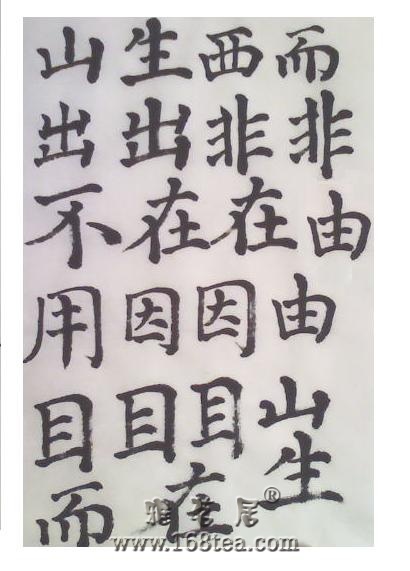 山生西而
出出非非
不在在由
用因因由
目目目山
而在生
雅茗居®
www.168tea.com